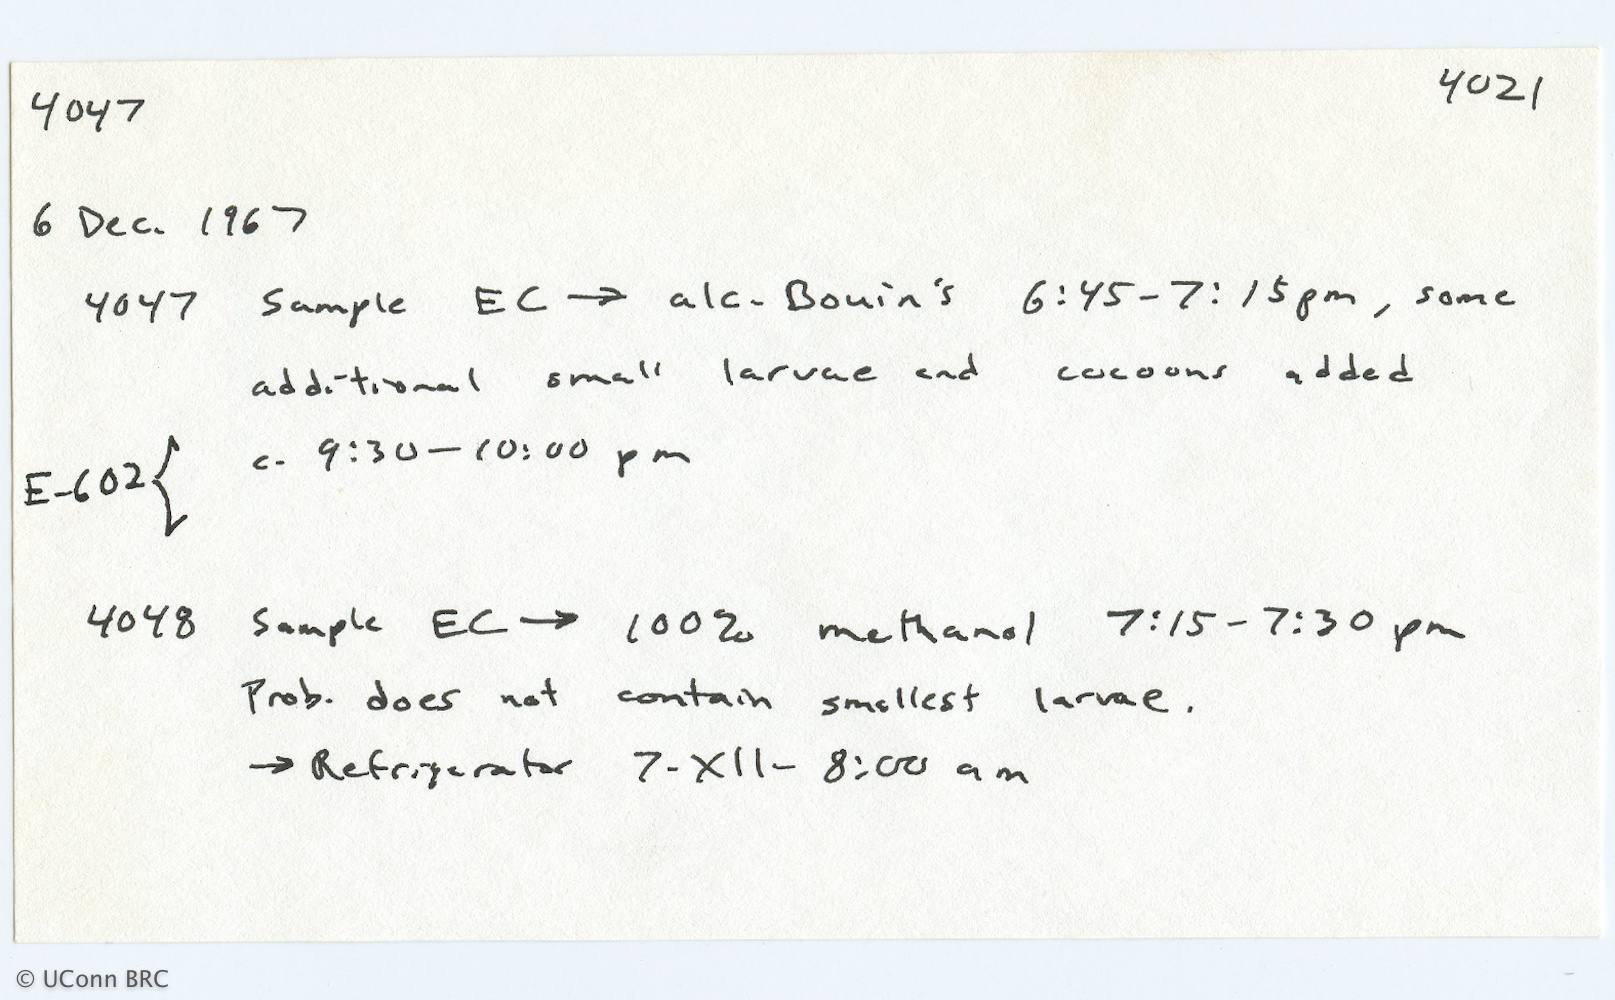 4047 4021
6 Dec. 1967
4047 Sample EC → alc. Bouin's 6:45-7:15pm, some
additional small larvae and cocoons added
c. 9:30-10:00 pm
E-602 {
4048 Sample EC → 100% methanol 7:15-7:30 pm
Prob. does not contain smallest larvae.
→ Refrigerator 7-XII- 8:00 am
© UConn BRC